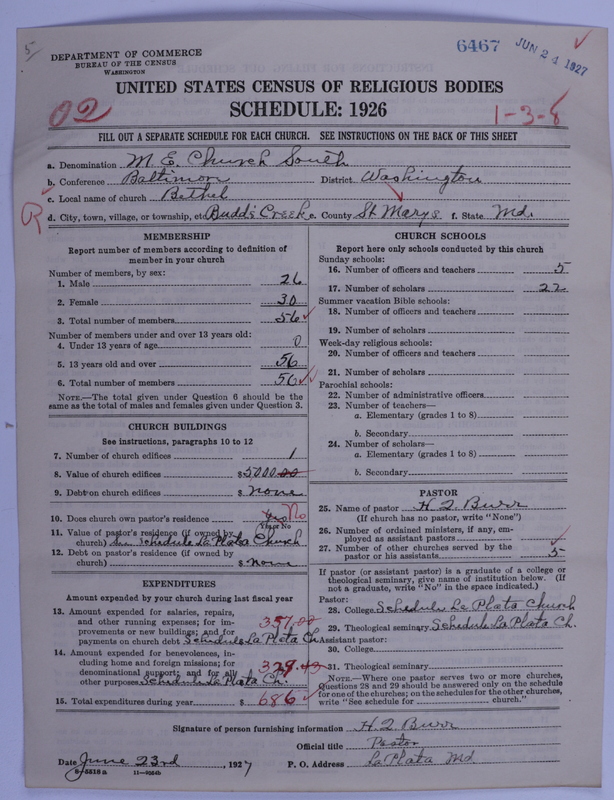 5
6467 JUN 24 1927
DEPARTMENT OF COMMERCE
BUREAU OF THE CENSUS
WASHINGTON
UNITED STATES CENSUS OF RELIGIOUS BODIES
02 SCHEDULE: 1926 1-3-8
FILL OUT A SEPARATE SCHEDULE FOR EACH CHURCH. SEE INSTRUCTIONS ON THE BACK OF THIS SHEET
a. Denomination M. E. Church South
b. Conference Baltimore District Washington
c. Local name of church Bethel
R d. City, town, village, or township, etc. Budd's Creek e. County St. Marys f. State Md.
MEMBERSHIP
Report number of members according to definition of
member in your church
Number of members, by sex:
1. Male 26
2. Female 30
3. Total number of members 56
Number of members under and over 13 years old:
4. Under 13 years of age 0
5. 13 years old and over 56
6. Total number of members 56
NOTE.—The total given under Question 6 should be
same as the total of males and females given under Question 3.
CHURCH BUILDINGS
See instructions, paragraphs 10 to 12
7. Number of church edifices 1
8. Value of church edifices $5000.00
9. Debt on church edifices $ none
10. Does church own pastor's residence Yes No
Yes or No
11. Value of pastor's residence (if owned by
church) See Schedule La Plata Church
12. Debt on pastor's residence (if owned by
church) $ none
EXPENDITURES
Amount expended by your church during last fiscal year
13. Amount expended for salaries, repairs,
and other running expenses; for im-
provements or new buildings; and for 357.00
payments on church debt Schedule La Plata Ch
14. Amount expended for benevolences, in-
cluding home and foreign missions; for
denominational support; and for all 329.43
other purposes Schedule La Plata Ch.
15. Total expenditures during year $ 686
CHURCH SCHOOLS
Report here only schools conducted by this church
Sunday schools:
16. Number of officers and teachers 5
17. Number of scholars 22
Summer vacation Bible schools:
18. Number of officers and teachers
19. Number of scholars
Week-day religious schools:
20. Number of officers and teachers
21. Number of scholars
Parochial schools:
22. Number of administrative officers
23. Number of teachers—
a. Elementary (grades 1 to 8)
b. Secondary
24. Number of scholars—
a. Elementary (grades 1 to 8)
b. Secondary
PASTOR
25. Name of pastor H. Q. Burr
(If church has no pastor, write "None")
26. Number of ordained ministers, if any, em-
ployed as assistant pastors
27. Number of other churches served by the
pastor or his assistants 5
If pastor (or assistant pastor) is a graduate of a college or
theological seminary, give name of institution below. (If
not a graduate, write "No" in the space indicated.)
Pastor:
28. College Schedule La Plata Church
29. Theological seminary Schedule La Plata Ch.
Assistant pastor:
30. College
31. Theological seminary
NOTE.—Where one pastor serves two or more churches,
Questions 28 and 29 should be answered only on the schedule
for one of the churches; on the schedules for the other churches,
write "See schedule for church."
Signature of person furnishing information H. Q. Burr
Official title Pastor
Date June 23rd, 1927 P. O. Address La Plata Md.
8-5518a 11-9554b